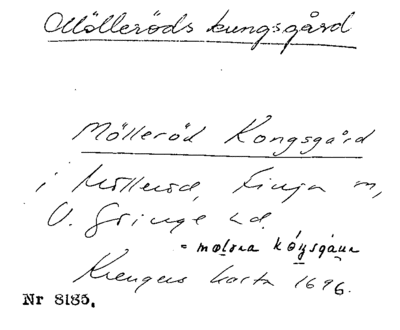 Mölleröds kungsgård
Mölleröd Kongsgård
i Mölleröd, Finja sn,
V. Göinge hd.
Krengers karta 1696.
Nr 8185.